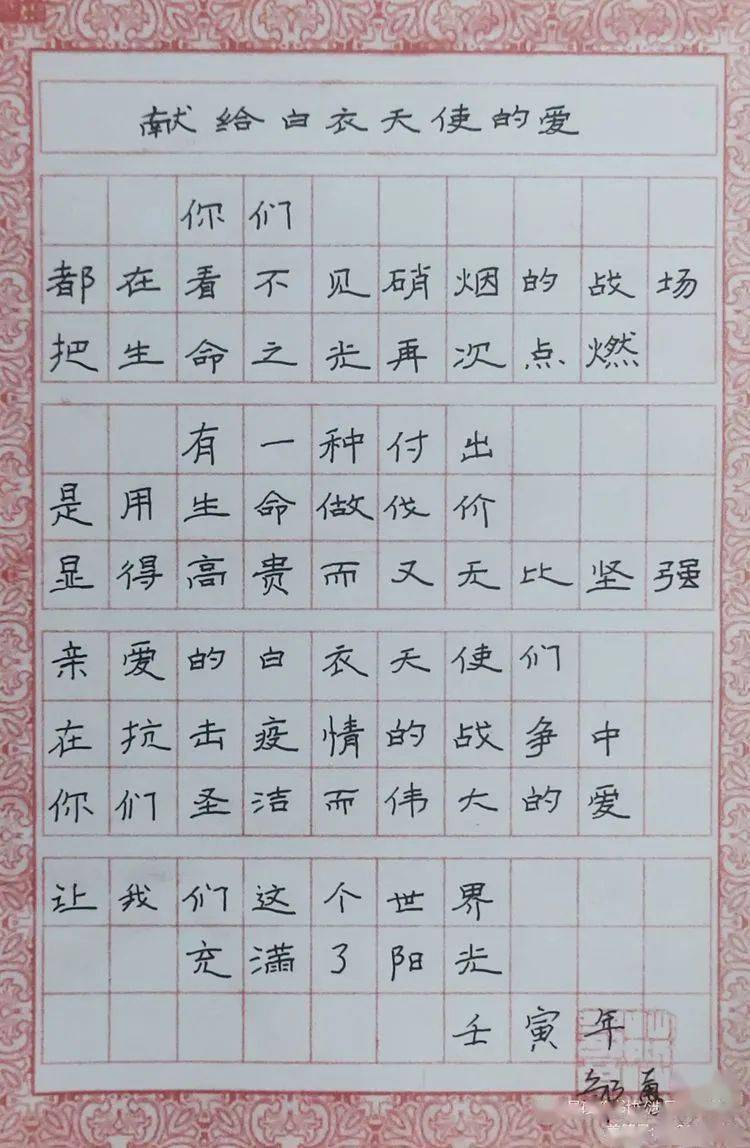 献给白衣天使的爱
你们
都在看不见硝烟的战场
把生命之光再次点燃
有一种付出
是用生命做伐价
显得高贵而又无比坚强
亲爱的白衣天使们
在抗击疫情的战争中
你们圣洁而伟大的爱
让我们这个世界
充满了阳光
壬寅年